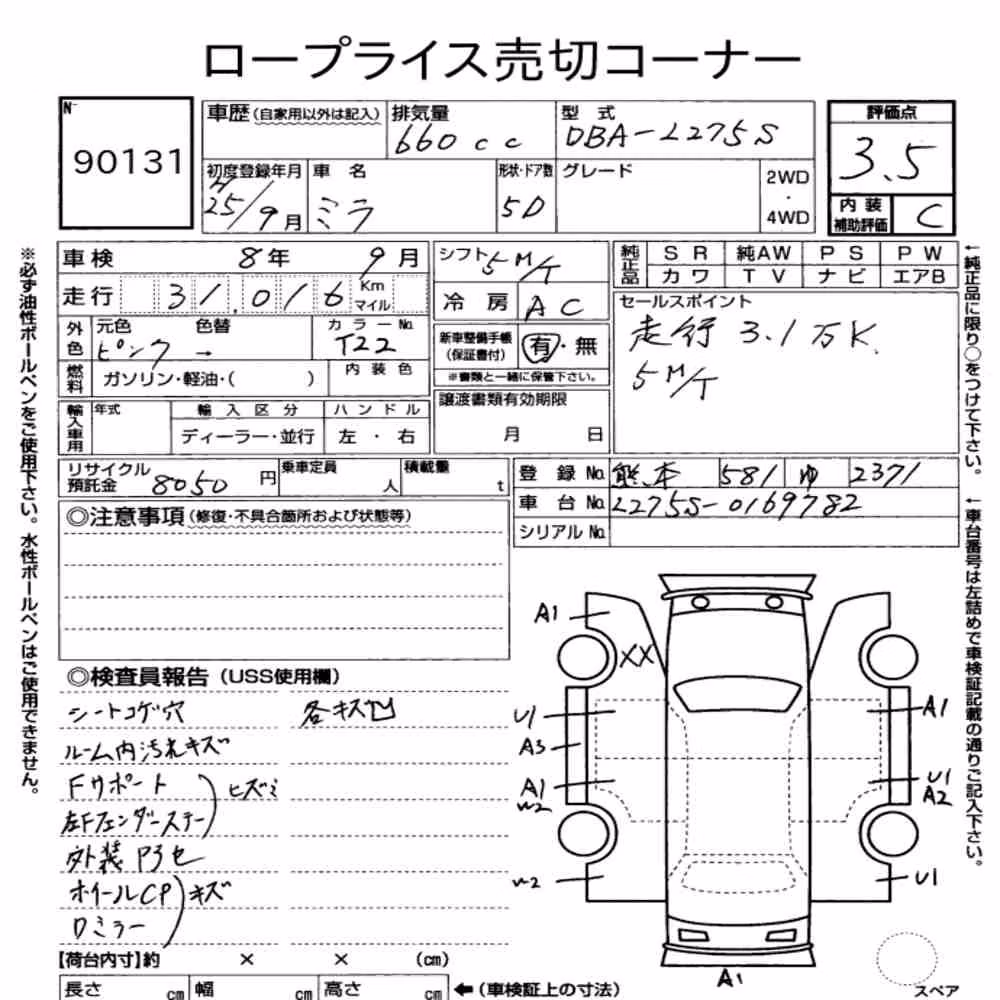 ロープライス売切コーナー
N-
90131
車歴 (自家用以外は記入)
排気量
660cc
型 式
DBA-L275S
評価点
3.5
初度登録年月
H25/9月
車 名
ミラ
形状・ドア数
5D
グレード
2WD
・
4WD
内装
補助評価
C
車検 8年 9月
走行 31,016 Km マイル
シフト 5M/T
冷房 AC
純正品
SR 純AW PS PW
カワ TV ナビ エアB
外色
元色 色替
ピンク →
カラーNo.
T22
新車整備手帳
(保証書付)
有・無
※書類と一緒に保管下さい。
セールスポイント
走行3.1万K.
5M/T
燃料
ガソリン・軽油・( )
内装色
輸入車用
年式
輸入区分
ディーラー・並行
ハンドル
左・右
譲渡書類有効期限
月 日
リサイクル
預託金 8050円
乗車定員
人
積載量
t
登録No. 熊本 581 ゆ 2371
車台No. L275S-0169782
シリアルNo.
◎注意事項 (修復・不具合箇所および状態等)
◎検査員報告 (USS使用欄)
シートコゲ穴 各キズ凹
ルーム内汚れキズ
Fサポート
左Fフェンダーステー
ヒズミ
外装P3セ
ホイールCP
Dミラー
キズ
A1
XX
U1
A3
A1
W2
W2
A1
U1
A2
U1
A1
スペア
【荷台内寸】約 × × (cm)
長さ cm 幅 cm 高さ cm
←(車検証上の寸法)
※必ず油性ボールペンをご使用下さい。水性ボールペンはご使用できません。
←純正品に限り○をつけて下さい。
←車台番号は左詰めで車検証記載の通りご記入下さい。